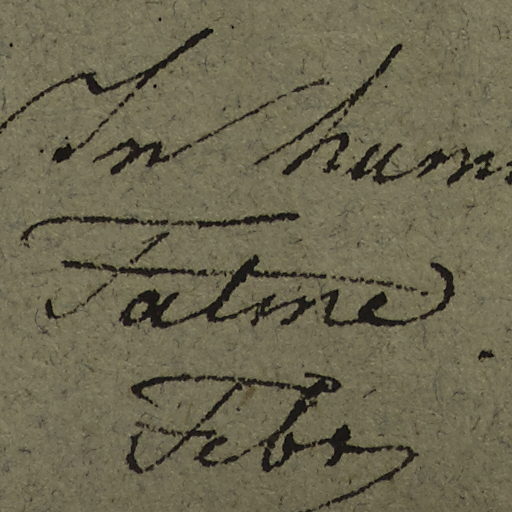 In hum
Fatme
Febr